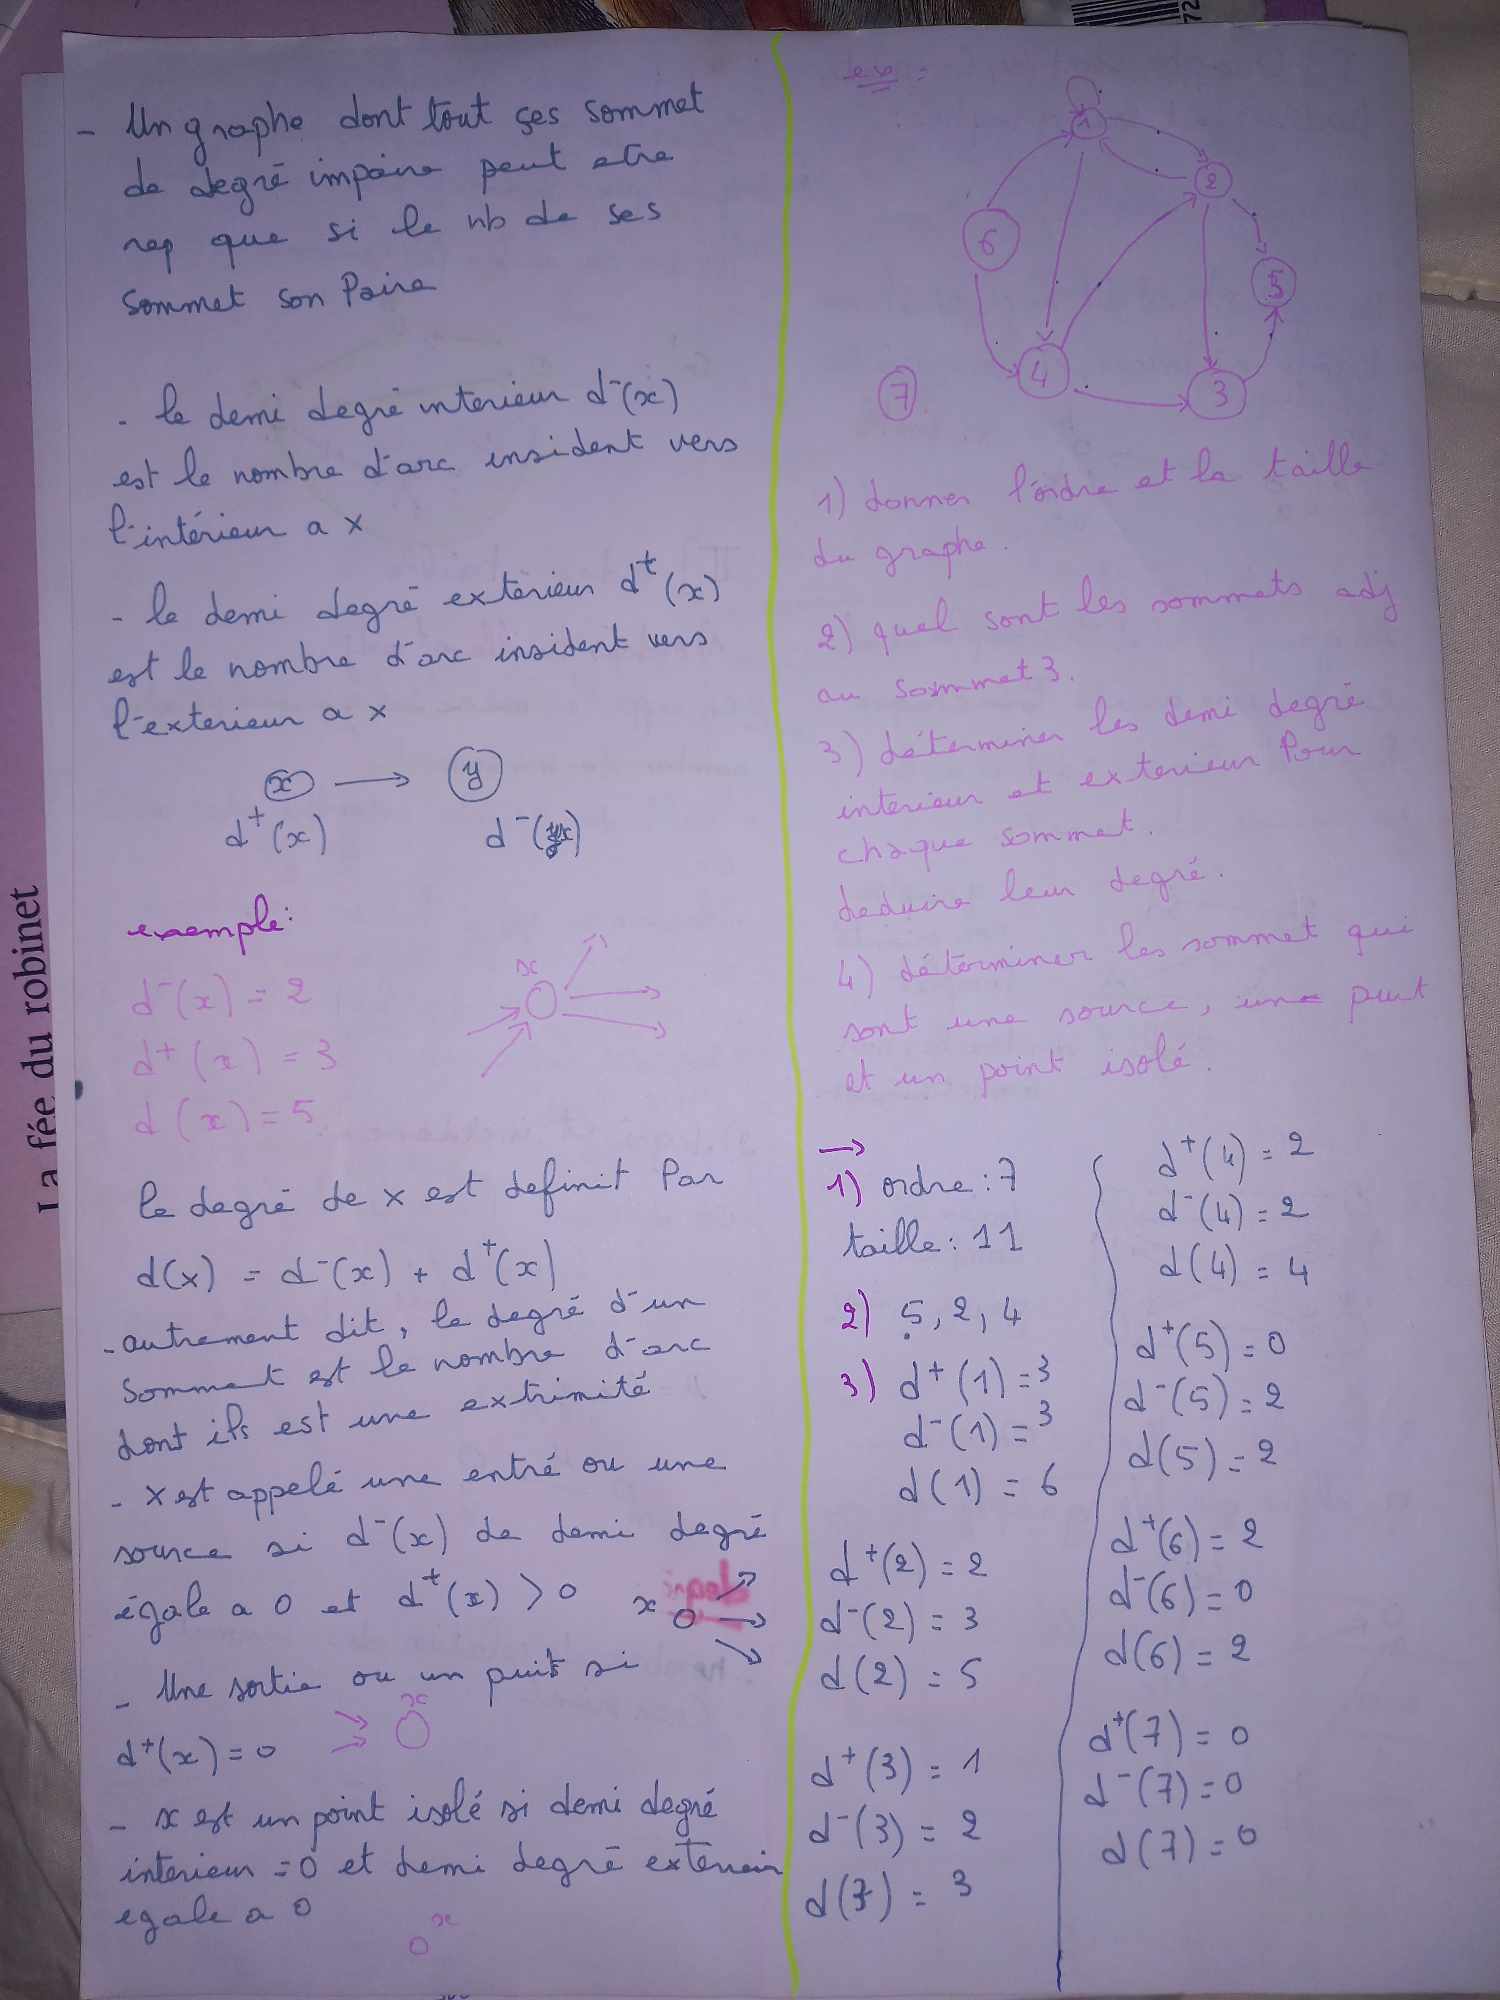 - Un graphe dont tout ses sommet
de degré impaire peut etre
rep que si le nb de ses
sommet son Paire
- le demi degré interieur d⁻(x)
est le nombre d'arc insident vers
l'intérieur a x
- le demi degré exterieur d⁺(x)
est le nombre d'arc insident vers
l'exterieur a x
x → y
d⁺(x) d⁻(y)
exemple:
d⁻(x) = 2
x
d⁺(x) = 3
d(x) = 5
le degré de x est definit Par
d(x) = d⁻(x) + d⁺(x)
- autrement dit, le degré d'un
sommet est le nombre d'arc
dont ils est une extrimité
- x est appelé une entré ou une
source si d⁻(x) de demi degré
égale a 0 et d⁺(x) > 0
x
- Une sortie ou un puit si
d⁺(x) = 0
x
- x est un point isolé si demi degré
interieur = 0 et demi degré exterieir
egale a 0
x
ex :
1
2
6
5
4
3
7
1) donner l'ordre et la taille
du graphe.
2) quel sont les sommets adj
au sommet 3.
3) déterminer les demi degré
interieur et exterieur Pour
chaque sommet.
deduire leur degré.
4) déterminer les sommet qui
sont une source, une puit
et un point isolé.
→
1) ordre : 7
taille : 11
2) 5, 2, 4
3) d⁺(1) = 3
d⁻(1) = 3
d(1) = 6
d⁺(2) = 2
d⁻(2) = 3
d(2) = 5
d⁺(3) = 1
d⁻(3) = 2
d(3) = 3
d⁺(4) = 2
d⁻(4) = 2
d(4) = 4
d⁺(5) = 0
d⁻(5) = 2
d(5) = 2
d⁺(6) = 2
d⁻(6) = 0
d(6) = 2
d⁺(7) = 0
d⁻(7) = 0
d(7) = 0
La fée du robinet
72